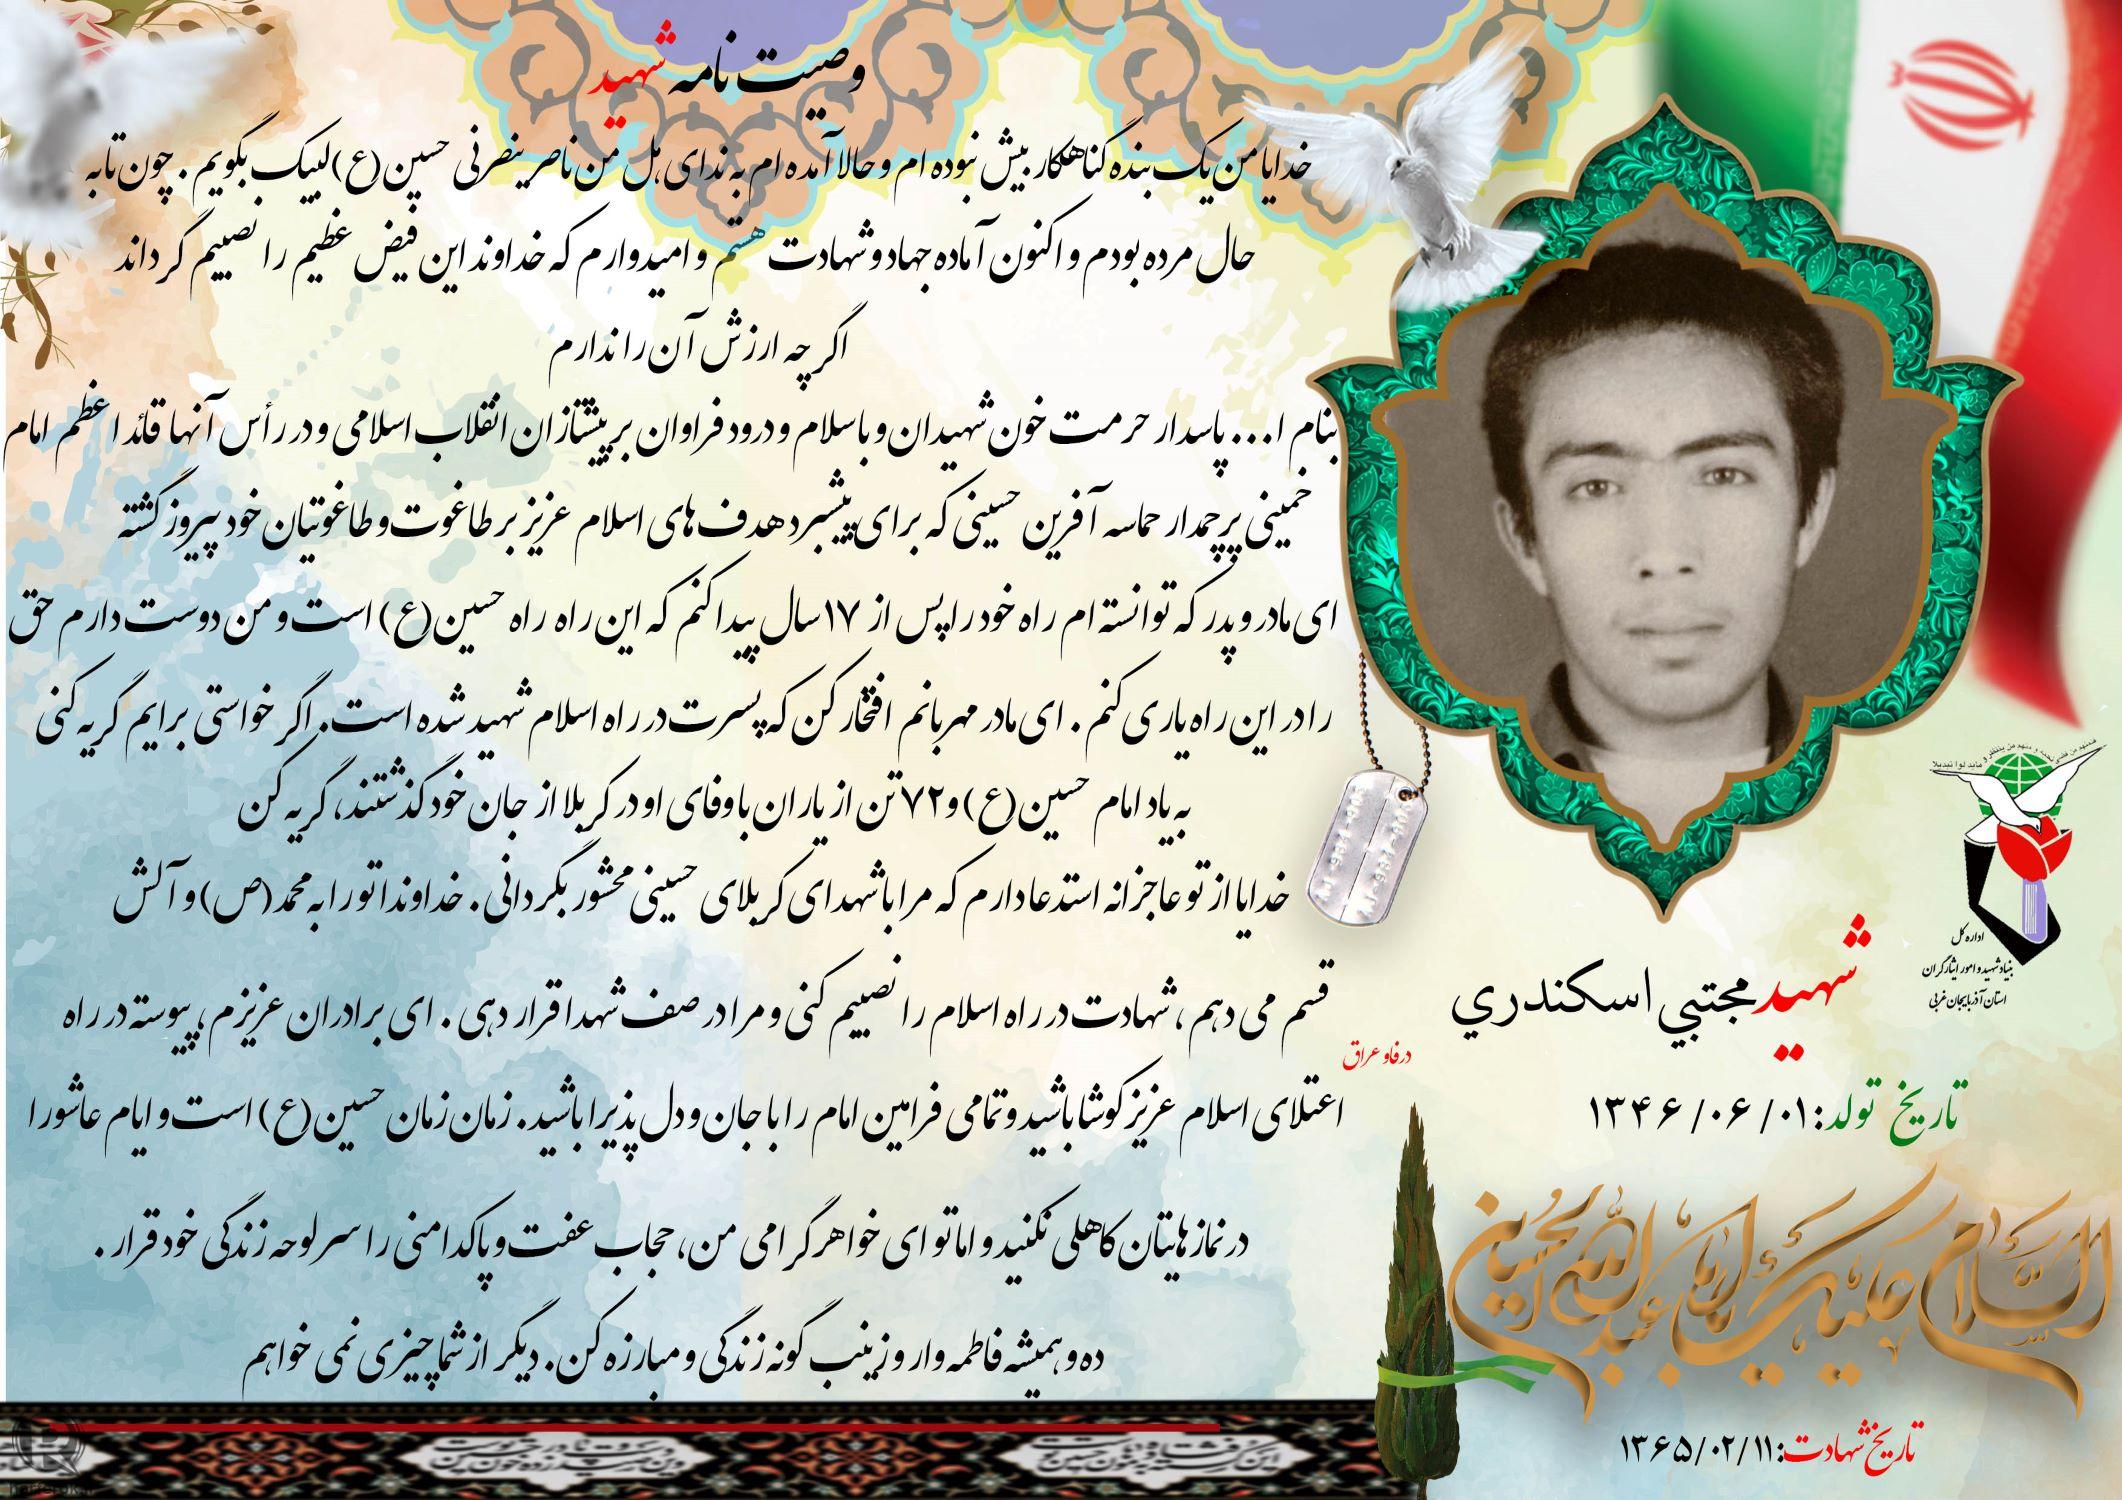 وصیت نامه شهید
خدایا من یک بنده گناهکار بیش نبوده ام و حالا آمده ام به ندای هل من ناصر ینصرنی حسین(ع) لبیک بگویم. چون تا به
حال مرده بودم و اکنون آماده جهاد و شهادت هستم و امیدوارم که خداوند این فیض عظیم را نصیبم گرداند
اگر چه ارزش آن را ندارم
بنام ا... پاسدار حرمت خون شهیدان و با سلام و درود فراوان بر پیشتازان انقلاب اسلامی و در رأس آنها قائد اعظم امام
خمینی پرچمدار حماسه آفرین حسینی که برای پیشبرد هدف های اسلام عزیز بر طاغوت و طاغوتیان خود پیروز گشته
ای مادر و پدر که توانسته ام راه خود را پس از ۱۷ سال پیدا کنم که این راه راه حسین(ع) است و من دوست دارم حق
را در این راه یاری کنم. ای مادر مهربانم افتخار کن که پسرت در راه اسلام شهید شده است. اگر خواستی برایم گریه کنی
به یاد امام حسین(ع) و ۷۲ تن از یاران باوفای او در کربلا از جان خود گذشتند، گریه کن
خدایا از تو عاجزانه استدعا دارم که مرا با شهدای کربلای حسینی محشور بگردانی. خداوندا تو را به محمد(ص) و آلش
قسم می دهم، شهادت در راه اسلام را نصیبم کنی و مرا در صف شهدا قرار دهی. ای برادران عزیزم، پیوسته در راه
اعتلای اسلام عزیز کوشا باشید و تمامی فرامین امام را با جان و دل پذیرا باشید. زمان زمان حسین(ع) است و ایام عاشورا
در نمازهایتان کاهلی نکنید و اما تو ای خواهر گرامی من، حجاب عفت و پاکدامنی را سرلوحه زندگی خود قرار.
ده و همیشه فاطمه وار و زینب گونه زندگی و مبارزه کن. دیگر از شما چیزی نمی خواهم
اداره کل
بنیاد شهید و امور ایثارگران
استان آذربایجان غربی
شهید مجتبي اسكندري
در فاو عراق
تاریخ تولد: ۱۳۴۶/۰۶/۰۱
السلام علیک یا ابا عبدالله الحسین
تاریخ شهادت: ۱۳۶۵/۰۲/۱۱